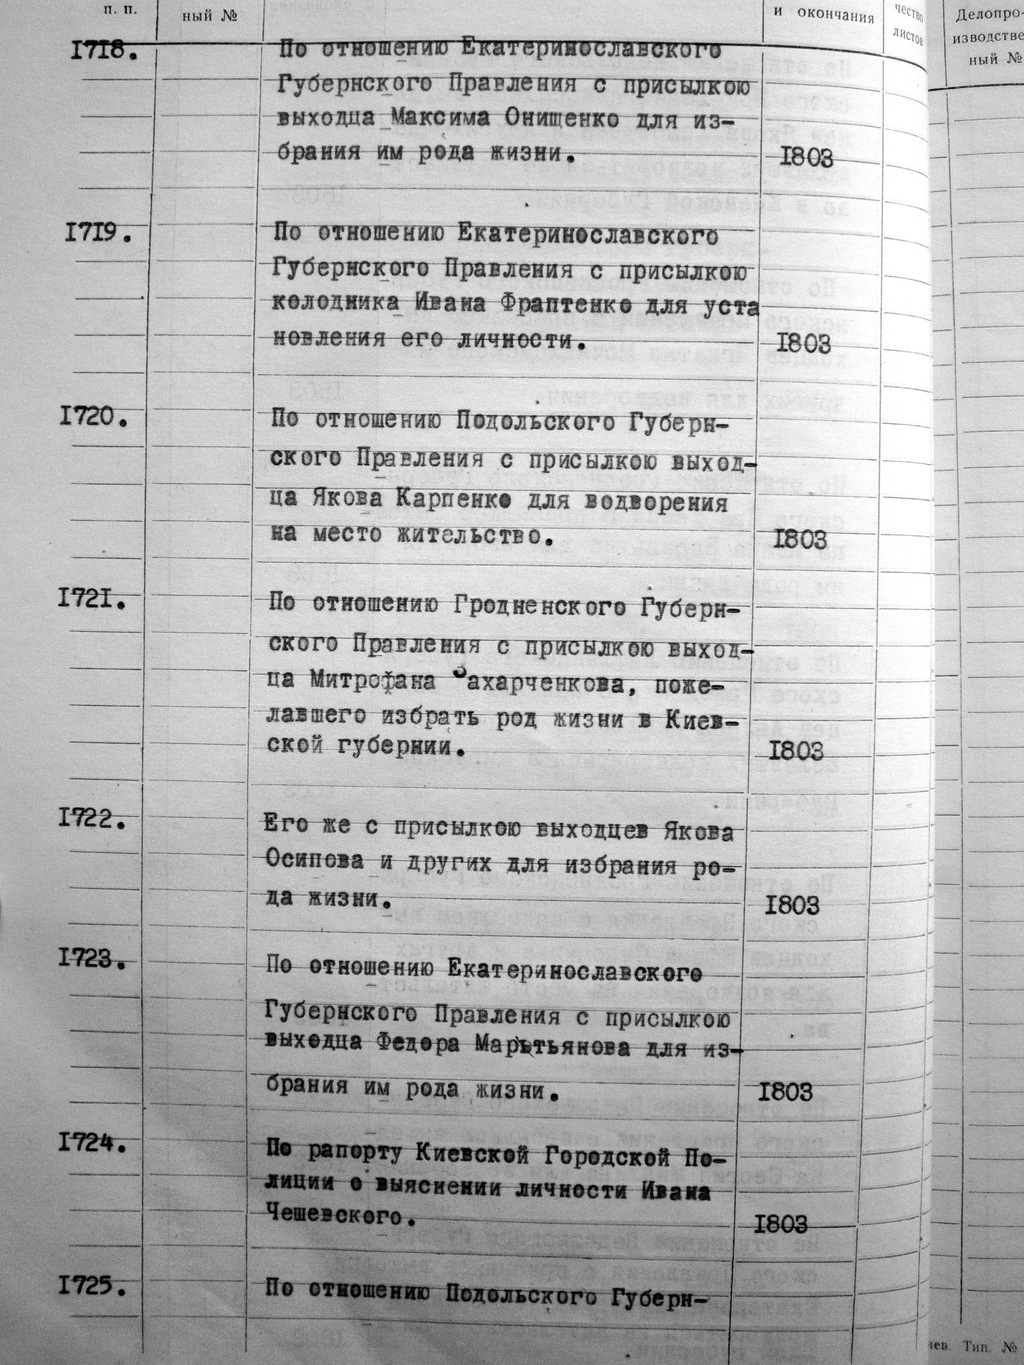 п. п.
ный №
и окончания
чество
листов
Делопро-
изводстве
ный №
1718.
По отношению Екатеринославского
Губернского Правления с присылкою
выходца Максима Онищенко для из-
брания им рода жизни.
1803
1719.
По отношению Екатеринославского
Губернского Правления с присылкою
колодника Ивана Фраптенко для уста
новления его личности.
1803
1720.
По отношению Подольского Губерн-
ского Правления с присылкою выход-
ца Якова Карпенко для водворения
на место жительство.
1803
1721.
По отношению Гродненского Губерн-
ского Правления с присылкою выход-
ца Митрофана Захарченкова, поже-
лавшего избрать род жизни в Киев-
ской губернии.
1803
1722.
Его же с присылкою выходцев Якова
Осипова и других для избрания ро-
да жизни.
1803
1723.
По отношению Екатеринославского
Губернского Правления с присылкою
выходца Федора Мартьянова для из-
брания им рода жизни.
1803
1724.
По рапорту Киевской Городской По-
лиции о выяснении личности Ивана
Чешевского.
1803
1725.
По отношению Подольского Губерн-
иев. Тип. №